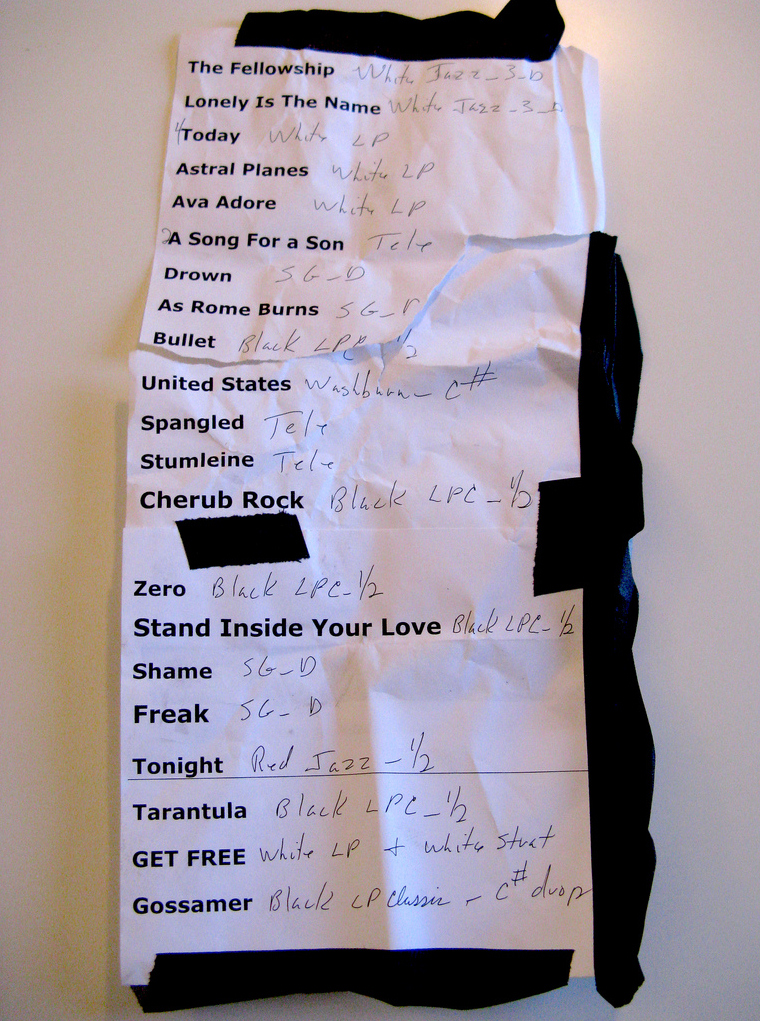 The Fellowship White Jazz - 3 - D
Lonely Is The Name White Jazz - 3 - D
Today White LP
Astral Planes White LP
Ava Adore White LP
2 A Song For a Son Tele
Drown SG - D
As Rome Burns SG -
Bullet Black LPC 1/2
United States Washburn - C#
Spangled Tele
Stumleine Tele
Cherub Rock Black LPC - 1/2
Zero Black LPC - 1/2
Stand Inside Your Love Black LPC - 1/2
Shame SG - D
Freak SG - D
Tonight Red Jazz - 1/2
Tarantula Black LPC - 1/2
GET FREE White LP + White Strat
Gossamer Black LP Classic - C# drop